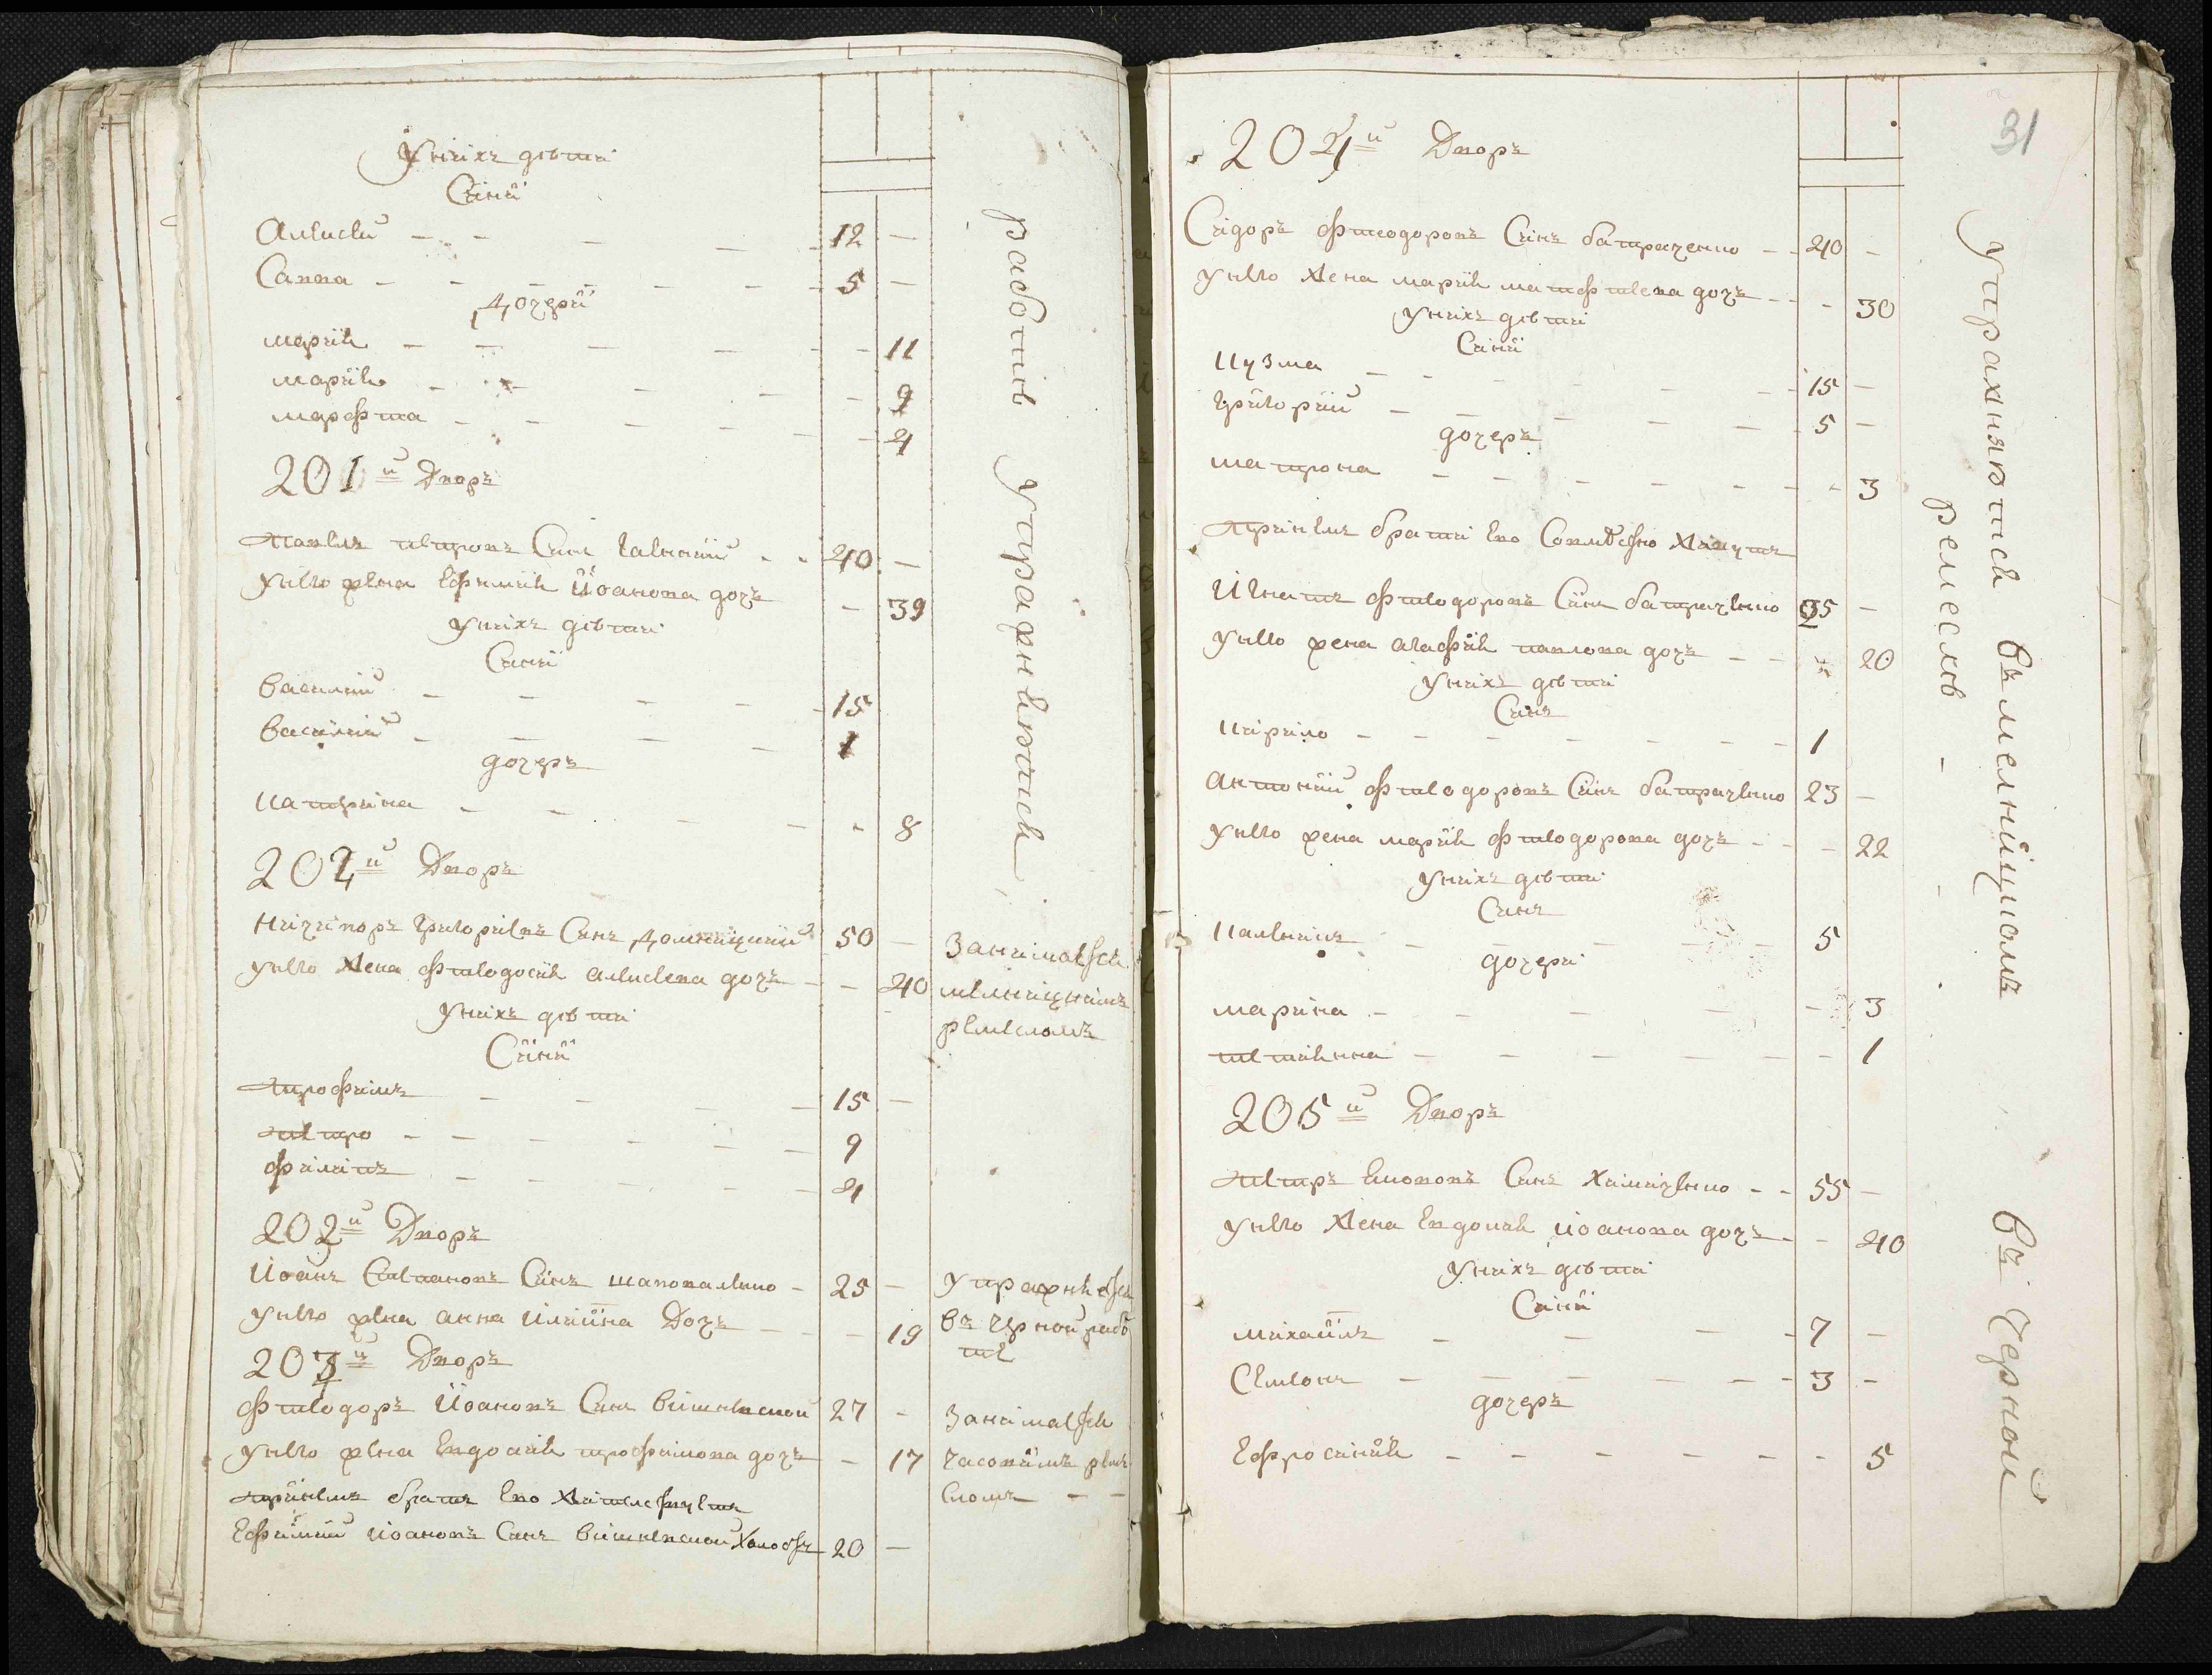 У нихъ дѣти
Сини
Алексей — 12 —
Савва — 5 —
Дочери
Мария — 11
Мария — 9
Марфта — 4
201й Дворъ
Павелъ Петровъ Синъ 40 —
У него жена Ефимия Иоанова дочъ — 39
У нихъ дѣти
Сини
Василий — 15
Василий — 1
дочеръ
Катерина — 8
202й Дворъ
Ничипоръ Григориевъ Синъ Домницкий 50 —
У него жена Фтеодосия Алексеева дочъ — 40
У нихъ дѣти
Сини
Трофимъ — 15 —
Петро — 9
Филипъ — 4
202й Дворъ
Иоанъ Степановъ Синъ Шаповаленко — 25 —
У него жена Анна Илиина Дочъ — 19
203й Дворъ
Фтеодоръ Иоановъ Синъ Вишневской 27 —
У него жена Евдокия Трофимова дочъ — 17
при немъ братъ его жителствуетъ
Ефимий Иоановъ Синъ Вишневской холостъ 20 —
работѣ упражняются
Занимается
мелницкимъ
ремесломъ
Упражняется
въ черной рабо
те
Занимается
часовимъ реме
сломъ — —
31
204й Дворъ
Сидоръ Фтеодоровъ Синъ Батраченко — 40 —
У него жена Мария Матфтеева дочъ — 30
У нихъ дѣти
Сини
Кузма — 15 —
Григорий — 5 —
дочеръ
Матрона — 3
При немъ брати его совмѣстно живутъ
Игнатъ Фтеодоровъ Синъ Батраченко 35 —
У него жена Агафия Павлова дочъ — 20
У нихъ дѣти
Синъ
Кирило — 1
Антоний Фтеодоровъ Синъ Батраченко 23 —
У него жена Мария Фтеодорова дочъ — 22
У нихъ дѣти
Синъ
Каленикъ — 5
дочери
Марина — 3
Тетияна — 1
205й Дворъ
Петръ Синъ Химиченко — 55 —
У него жена Евдокия Иоанова дочъ — 40
У нихъ дѣти
Сини
Михаилъ — 7 —
Семионъ — 3 —
дочеръ
Ефросиния — 5
Упражняются въ мелницкомъ
ремеслѣ — —
въ черной